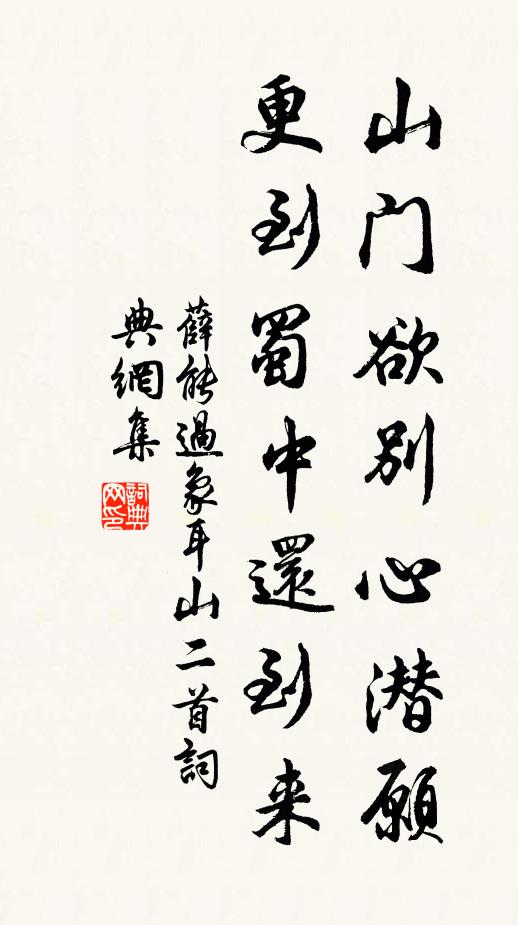 山门欲别心潜願
更到蜀中還到来
薛能過象耳山二首詞
典網集
詞典
网印